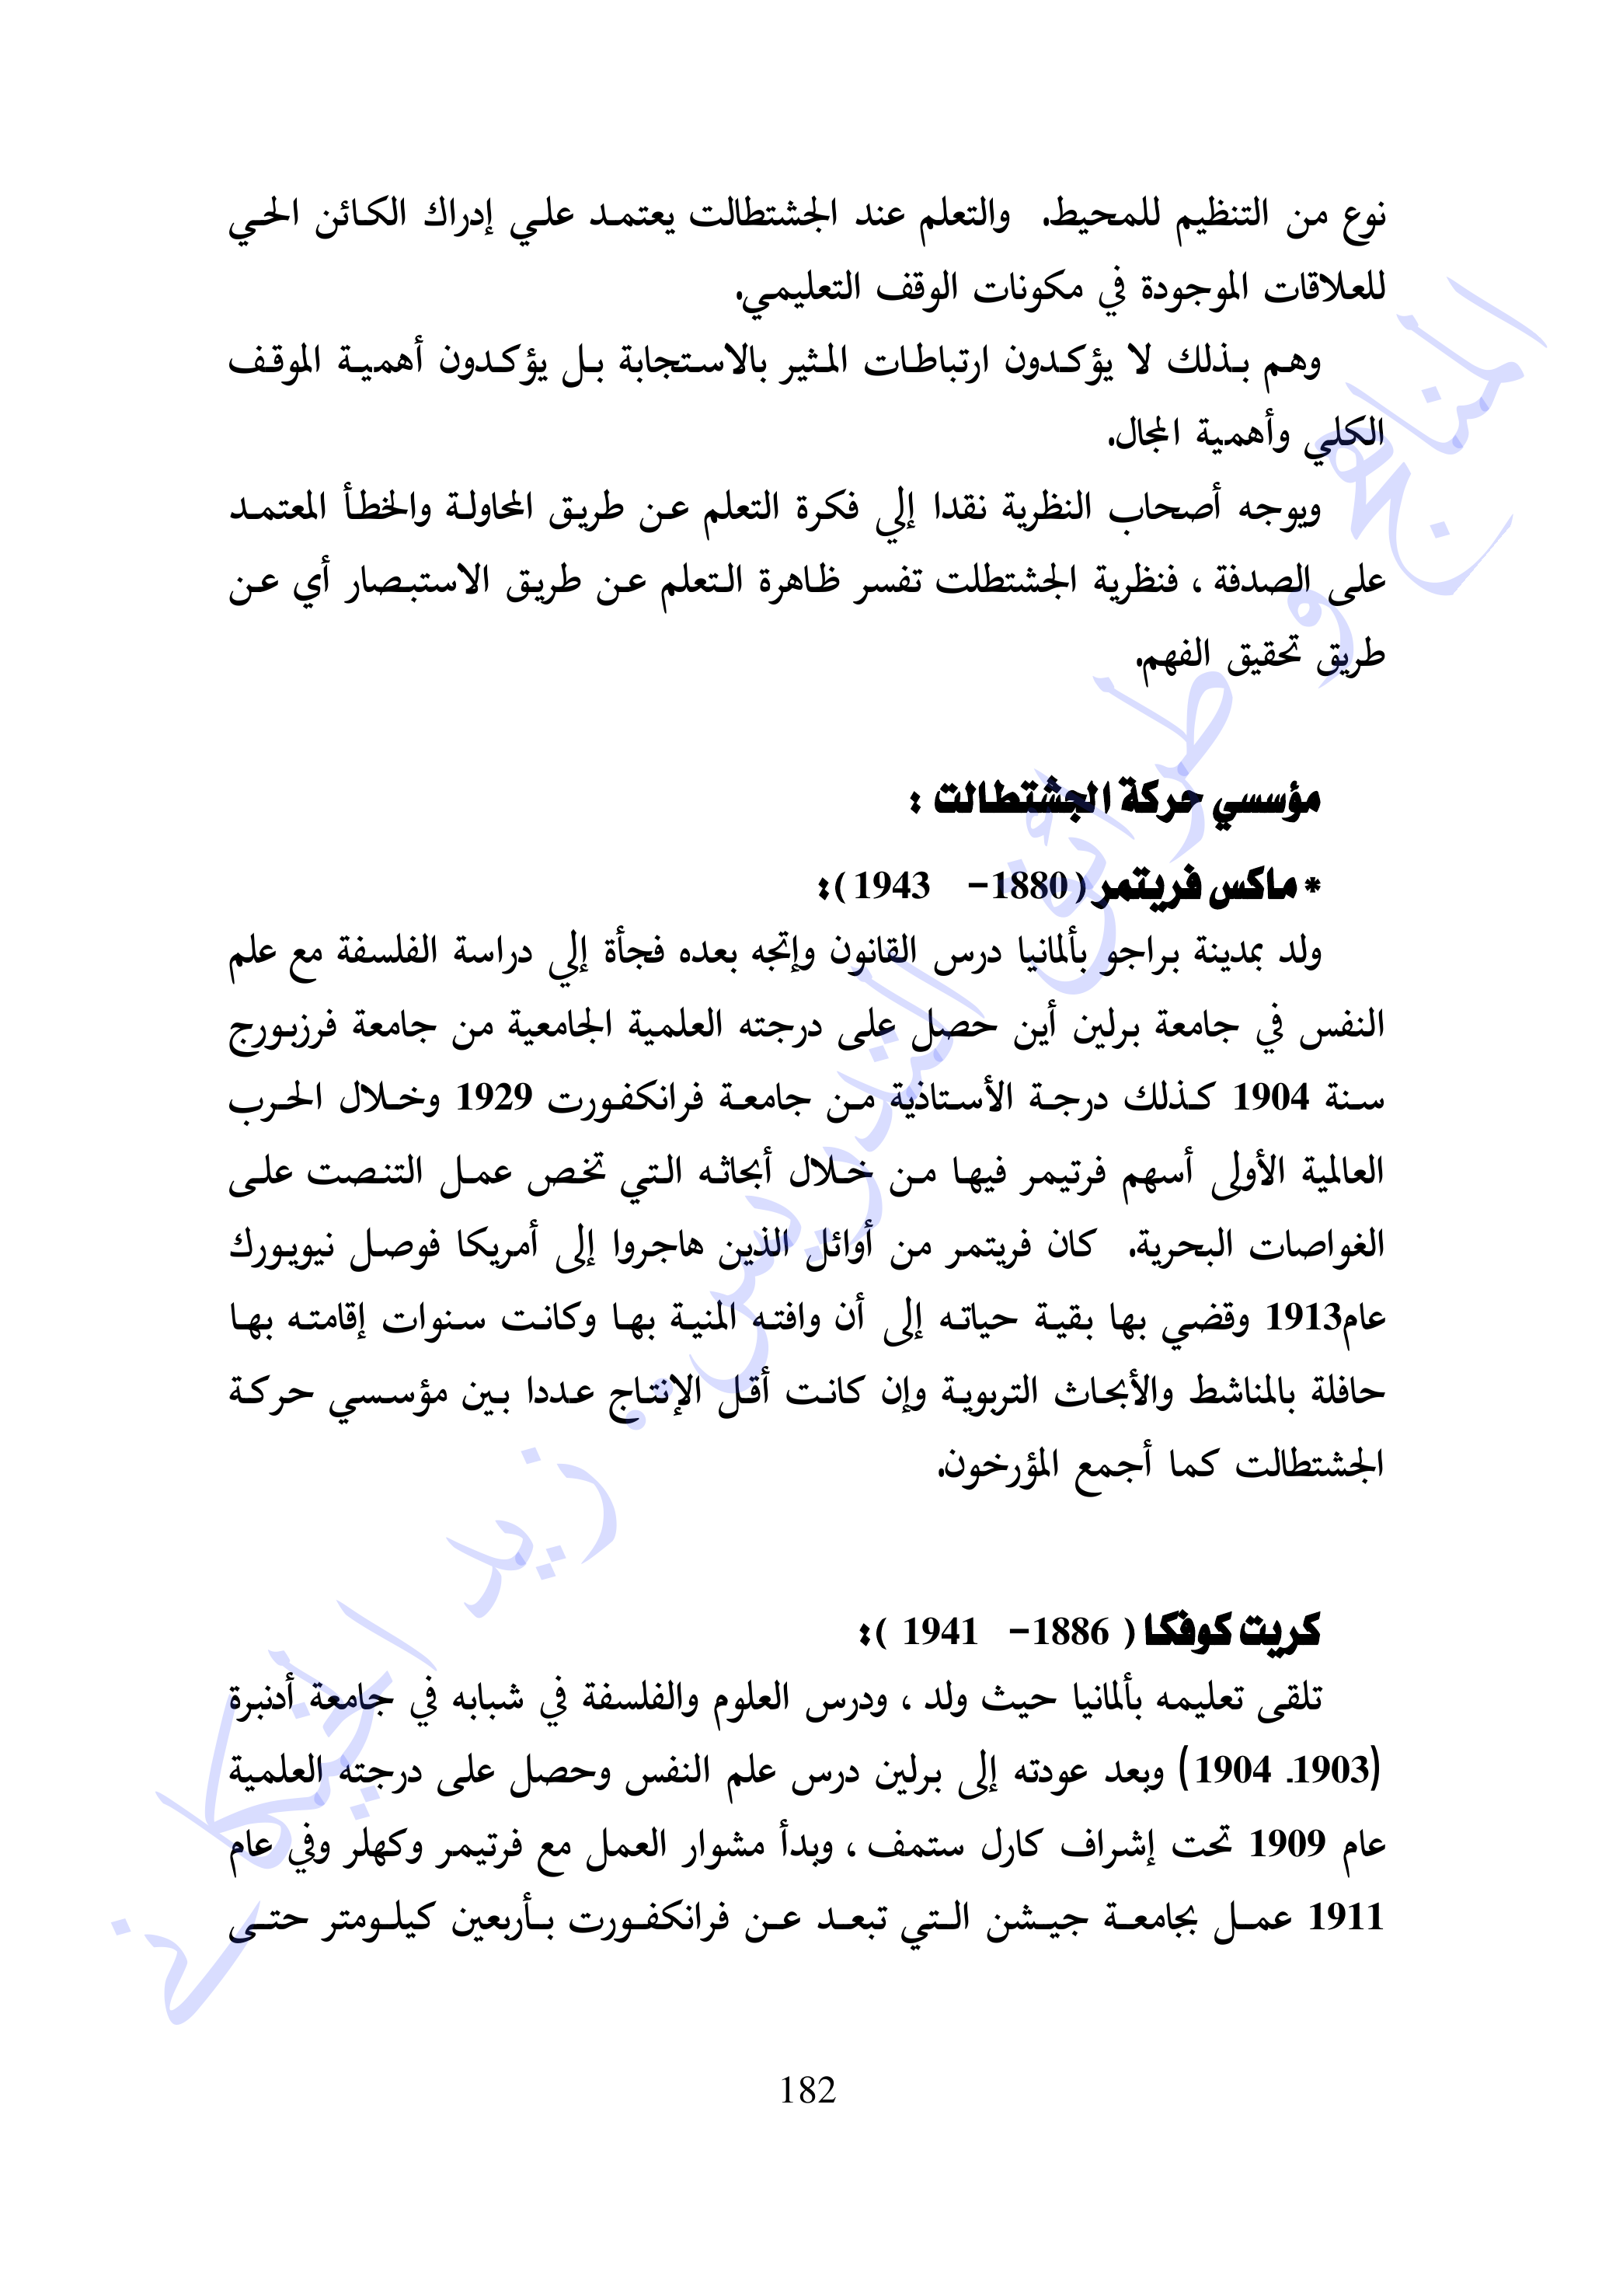 نوع من التنظيم للمحيط. والتعلم عند الجشتطالت يعتمد علي إدراك الكائن الحي
للعلاقات الموجودة في مكونات الوقف التعليمي.
وهم بذلك لا يؤكدون ارتباطات المثير بالاستجابة بل يؤكدون أهمية الموقف
الكلي وأهمية المجال.
ويوجه أصحاب النظرية نقدا إلي فكرة التعلم عن طريق المحاولة والخطأ المعتمد
على الصدفة ، فنظرية الجشتطلت تفسر ظاهرة التعلم عن طريق الاستبصار أي عن
طريق تحقيق الفهم.
مؤسسي حركة الجشتطالت :
* ماكس فريتمر ( 1880– 1943 ):
ولد بمدينة براجو بألمانيا درس القانون وإتجه بعده فجأة إلي دراسة الفلسفة مع علم
النفس في جامعة برلين أين حصل على درجته العلمية الجامعية من جامعة فرزبورج
سنة 1904 كذلك درجة الأستاذية من جامعة فرانكفورت 1929 وخلال الحرب
العالمية الأولى أسهم فرتيمر فيها من خلال أبحاثه التي تخص عمل التنصت على
الغواصات البحرية. كان فريتمر من أوائل الذين هاجروا إلى أمريكا فوصل نيويورك
عام1913 وقضي بها بقية حياته إلى أن وافته المنية بها وكانت سنوات إقامته بها
حافلة بالمناشط والأبحاث التربوية وإن كانت أقل الإنتاج عددا بين مؤسسي حركة
الجشتطالت كما أجمع المؤرخون.
كريت كوفكا ( 1886– 1941 ):
تلقى تعليمه بألمانيا حيث ولد ، ودرس العلوم والفلسفة في شبابه في جامعة أدنبرة
(1903ـ 1904) وبعد عودته إلى برلين درس علم النفس وحصل على درجته العلمية
عام 1909 تحت إشراف كارل ستمف ، وبدأ مشوار العمل مع فرتيمر وكهلر وفي عام
1911 عمل بجامعة جيشن التي تبعد عن فرانكفورت بأربعين كيلومتر حتى
182